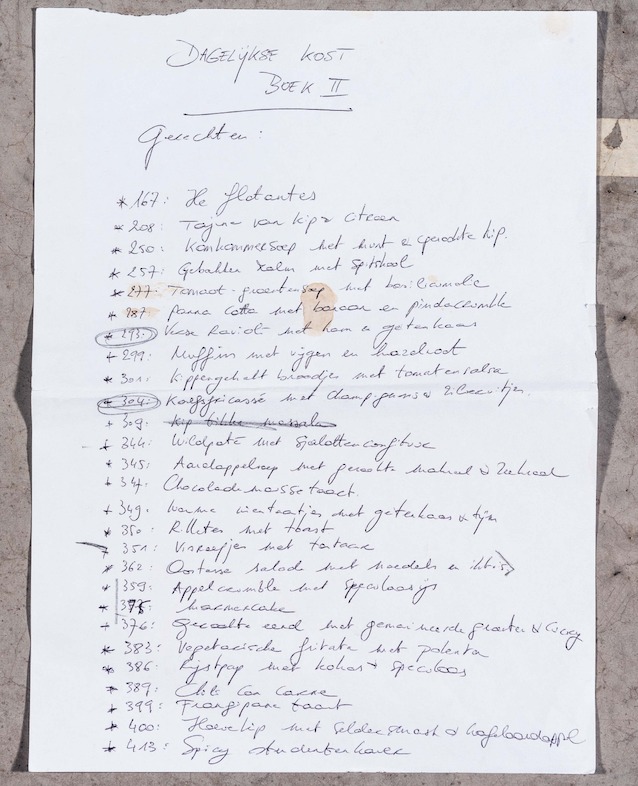 DAGELIJKSE KOST
BOEK II
Gerechten:
* 167: Ile flotantes
* 208: Tajine van kip & citroen
* 250: Komkommersoep met munt & gerookte kip.
* 257: Gebakken zalm met spitskool
* 277: Tomaat-groentensoep met basilicumolie
* 287: panna cotta met banaan en pindacrumble
* 293: Verse Ravioli met ham & geitenkaas
* 299: Muffins met vijgen en hazelnoot
* 301: Kippengehakt broodjes met tomatensalsa
* 304: Kalfsfricassé met champignons & zilveruitjes.
+ 309: Kip tikka massala
+ 344: Wildpaté met sjalottenconfituur
* 345: Aardappelsoep met gerookte makreel &
+ 347: Chocolademousse taart.
+ 349: warme met geitenkaas & tijm
* 350: Rilletes met toast
+ 351: Visreepjes met tartaar
* 362: Oosterse salade met noedels en
* 359: Appelcrumble met speculaasijs
* marmercake
+ 376: gerookte eend met gemarineerde groenten & Curry
* 383: Vegetarische fritata met polenta
* 386: Rijstpap met kokos & speculoos
* 389: Chili Con Carne
+ 399: Frangipane taart
* 400: Hoevekip met seldersmash &
* 413: Spicy